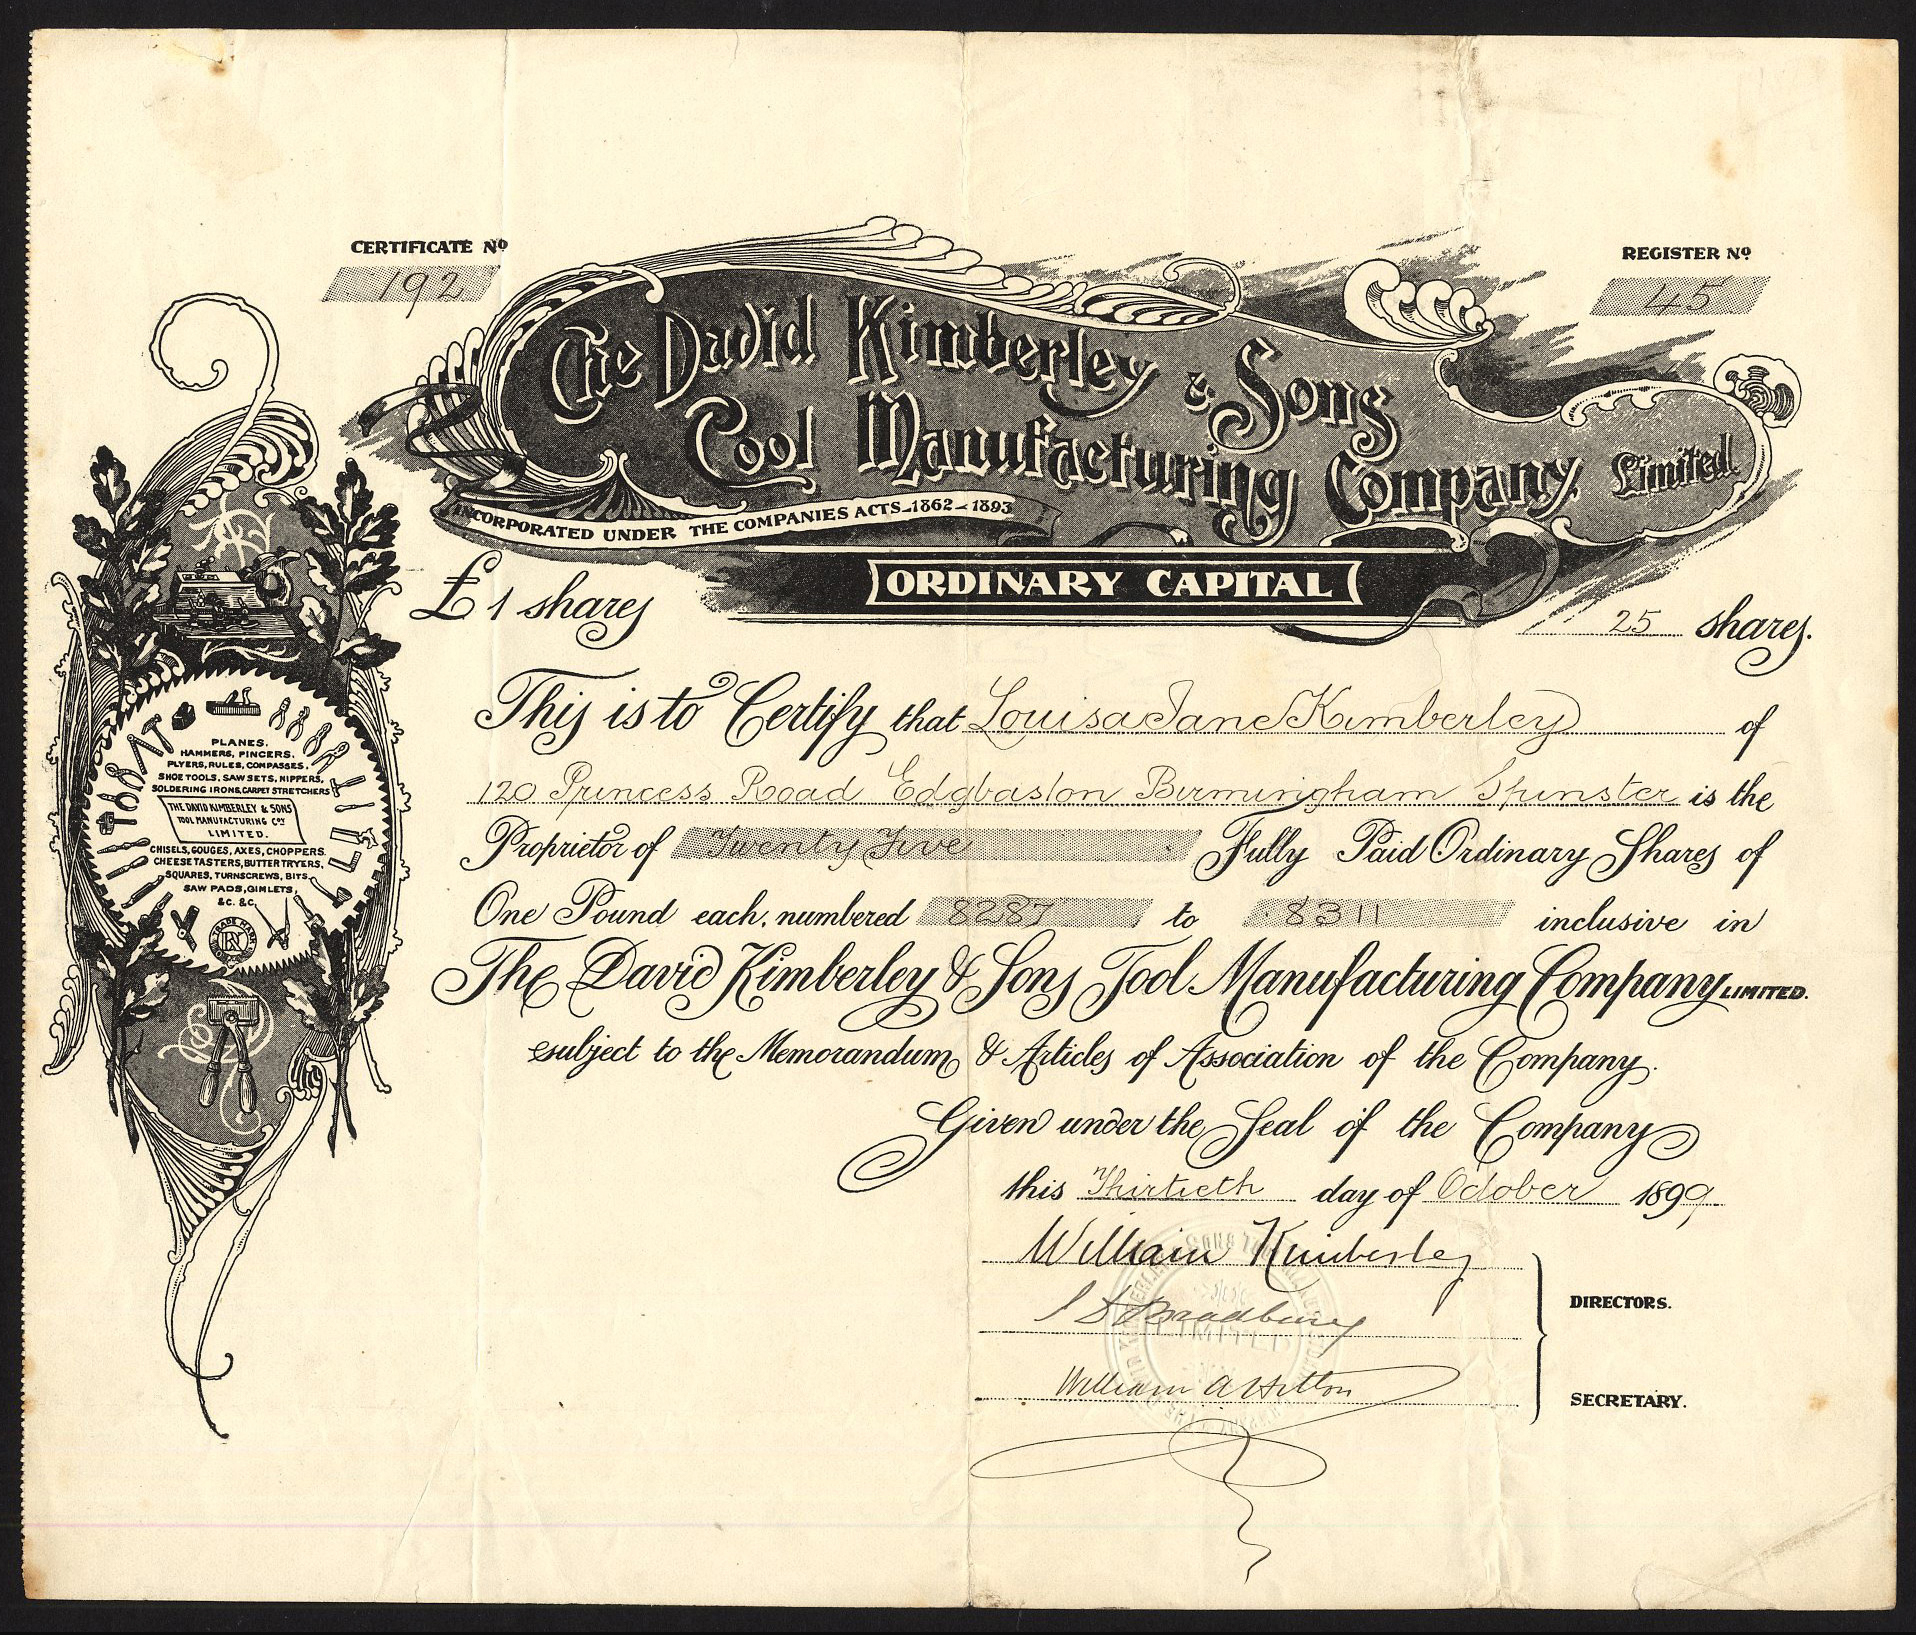 CERTIFICATE Nº
192
REGISTER Nº
45
The David Kimberley & Sons
Tool Manufacturing Company Limited
INCORPORATED UNDER THE COMPANIES ACTS_1862–1893
ORDINARY CAPITAL
£1 shares
25 shares.
This is to Certify that Louisa Jane Kimberley of
120 Princess Road Edgbaston Birmingham Spinster is the
Proprietor of Twenty Five Fully Paid Ordinary Shares of
One Pound each, numbered 8287 to 8311 inclusive in
The David Kimberley & Sons Tool Manufacturing Company LIMITED.
subject to the Memorandum & Articles of Association of the Company.
Given under the Seal of the Company
this Thirtieth day of October 1899
William Kimberley
Bradbury
DIRECTORS.
William A Hilton
SECRETARY.
PLANES,
HAMMERS, PINCERS.
PLYERS, RULES, COMPASSES.
SHOE TOOLS, SAW SETS, NIPPERS,
SOLDERING IRONS, CARPET STRETCHERS
THE DAVID KIMBERLEY & SONS
TOOL MANUFACTURING COY
LIMITED.
CHISELS, GOUGES, AXES, CHOPPERS.
CHEESETASTERS, BUTTER TRYERS,
SQUARES, TURNSCREWS, BITS,
SAW PADS, GIMLETS,
&C. &C.
TRADE MARK
LIMITED